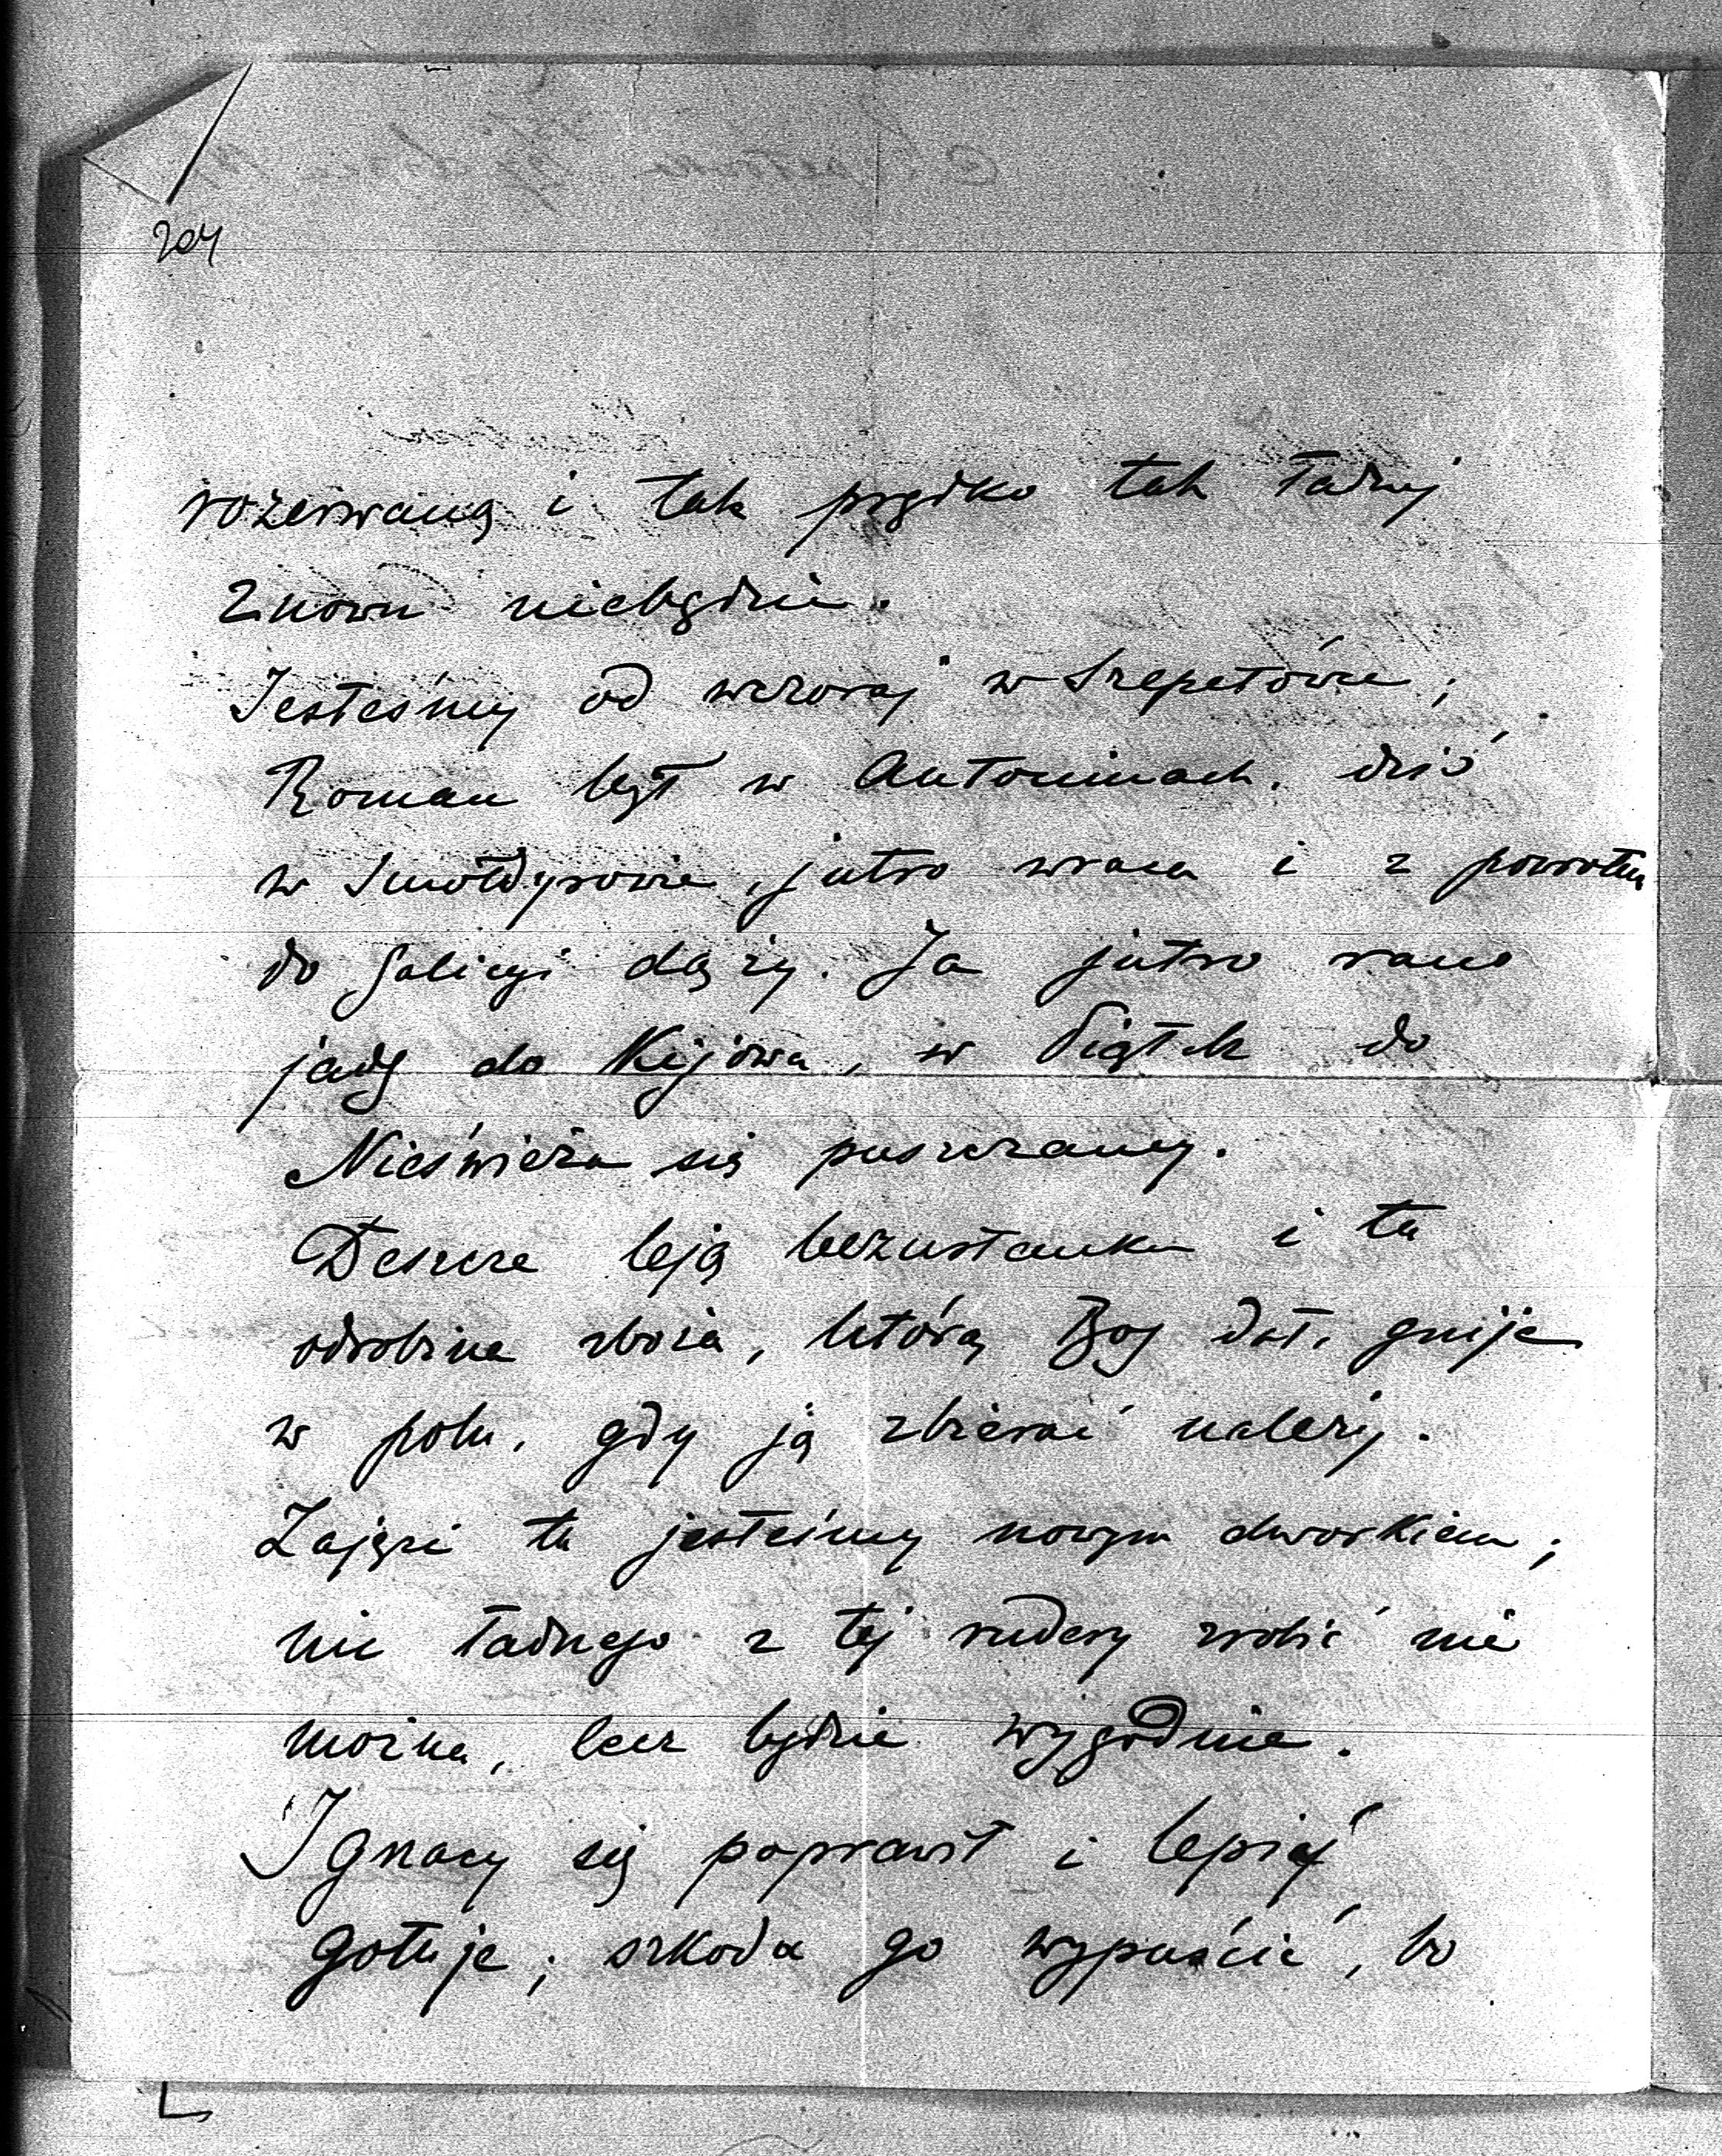 204
rozerwaną i tak prędko tak ładnej
znowu niebędzie.
Jesteśmy od wczoraj w Szepetówce;
Roman był w Antoninach, dziś
w Smołdyrowie, jutro wraca i z powrotem
do Galicyi dąży. Ja jutro rano
jadę do Kijowa, w Piątek do
Nieświeża się puszczamy.
Deszcze leją bezustanku i ta
odrobina zboża, którą Bog dał, gnije
w polu, gdy ją zbierać należy.
Zajęci tu jesteśmy nowym dworkiem;
nic ładnego z tej rudery zrobić nie
można, lecz będzie wygodnie.
Ignacy się poprawił i lepiej
gotuje; szkoda go wypuścić, bo